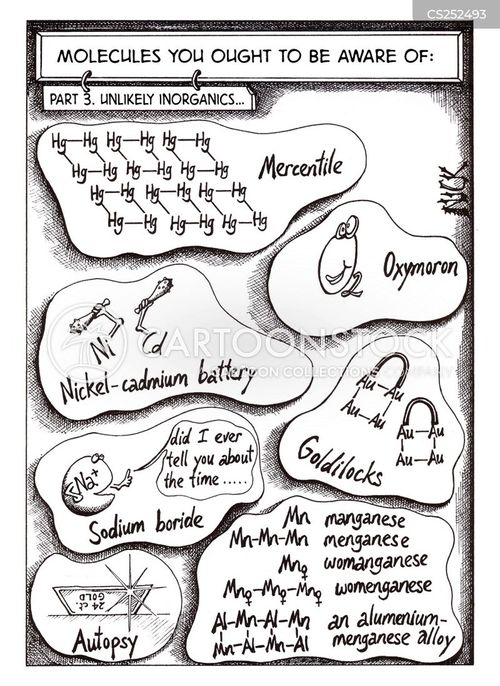 CS252493
MOLECULES YOU OUGHT TO BE AWARE OF:
PART 3. UNLIKELY INORGANICS...
Hg—Hg Hg—Hg Hg—Hg
Hg—Hg Hg—Hg Hg—Hg
Hg—Hg Hg—Hg Hg—Hg
Hg—Hg Hg—Hg Hg—Hg
Mercentile
NICK
O2
Oxymoron
Ni Cd
Nickel-cadmium battery
CARTOONSTOCK
Au—Au
Au—Au
Au—Au
Au—Au
Goldilocks
Na+
did I ever
tell you about
the time .....
Sodium boride
24 ct.
GOLD
Autopsy
Mn manganese
Mn-Mn-Mn menganese
Mn♀ womanganese
Mn♀-Mn♀-Mn♀ womenganese
Al-Mn-Al-Mn an alumenium-
Mn-Al-Mn-Al menganese alloy